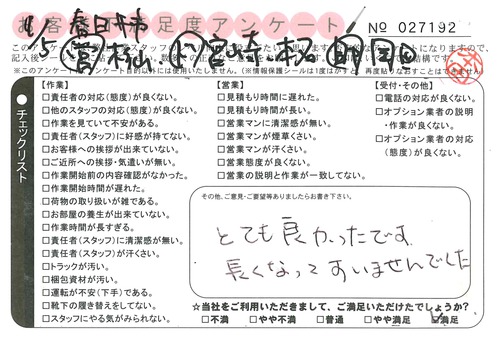 お客様満足度アンケート
№ 027192
6/5
春日井市
チェックリスト
【作業】
□責任者の対応(態度)が良くない。
□他のスタッフの対応(態度)が良くない。
□作業を見ていて不安がある。
□責任者(スタッフ)に好感が持てない。
□お客様への挨拶が出来ていない。
□ご近所への挨拶・気遣いが無い。
□作業開始前の内容確認がなかった。
□作業開始時間が遅れた。
□荷物の取り扱いが雑である。
□お部屋の養生が出来ていない。
□作業時間が長すぎる。
□責任者(スタッフ)に清潔感が無い。
□責任者(スタッフ)が汗くさい。
□トラックが汚い。
□梱包資材が汚い。
□運転が不安(下手)である。
□靴下の履き替えをしてない。
□スタッフにやる気がみられない。
【営業】
□見積もり時間に遅れた。
□見積もり時間が長い。
□営業マンに清潔感が無い。
□営業マンが煙草くさい。
□営業マンが汗くさい。
□営業態度が良くない。
□営業の説明と作業が一致してない。
【受付・その他】
□電話の対応が良くない。
□オプション業者の説明
・作業が良くない。
□オプション業者の対応
(態度)が良くない。
その他、ご意見・ご要望等ありましたらお書き下さい。
とても良かったです
長くなってすいませんでした
☆当社をご利用いただきまして、ご満足いただけたでしょうか?
□不満 □やや不満 □普通 □やや満足 ☑満足